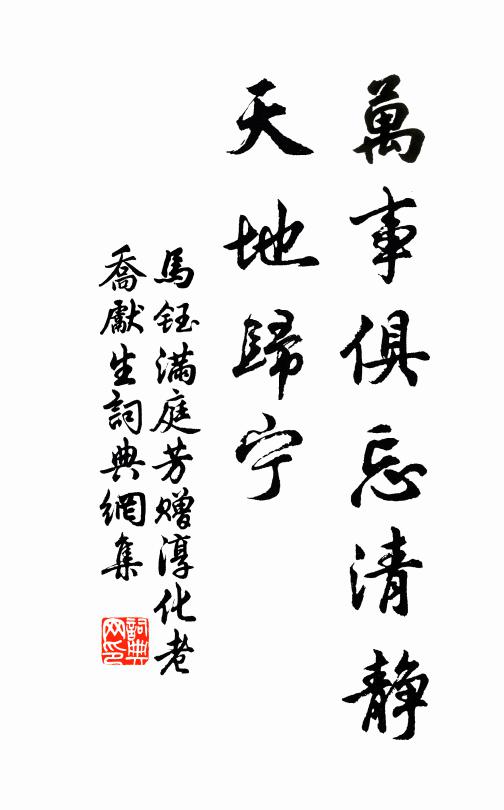 萬事俱忘清静
天地歸宁
馬鈺滿庭芳贈淳化老
喬獻生詞典網集
詞典
网印